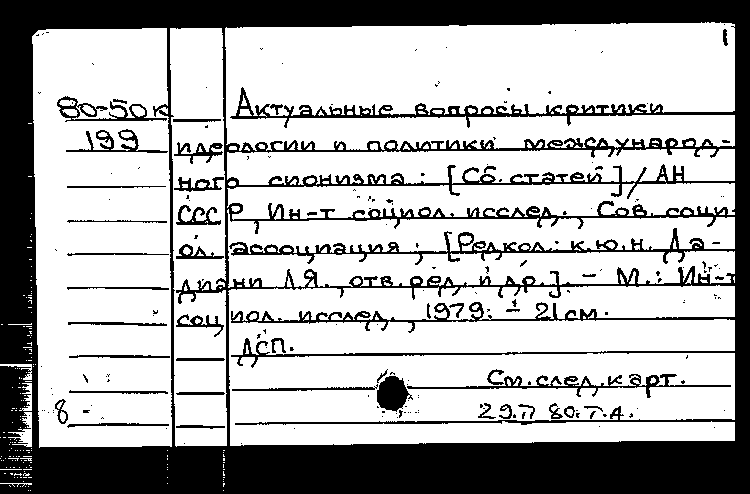 1
80-50к Актуальные вопросы критики
199 идеологии и политики международ-
ного сионизма : [Сб. статей] / АН
СССР, Ин-т социол. исслед., Сов. соци-
ол. ассоциация ; [Редкол.: к.ю.н. Да-
диани Л.Я., отв. ред. и др.]. - М.: Ин-т
социол. исслед., 1979. - 21 см.
ДСП.
См. след. карт.
8 - 29.П 80.Т.А.